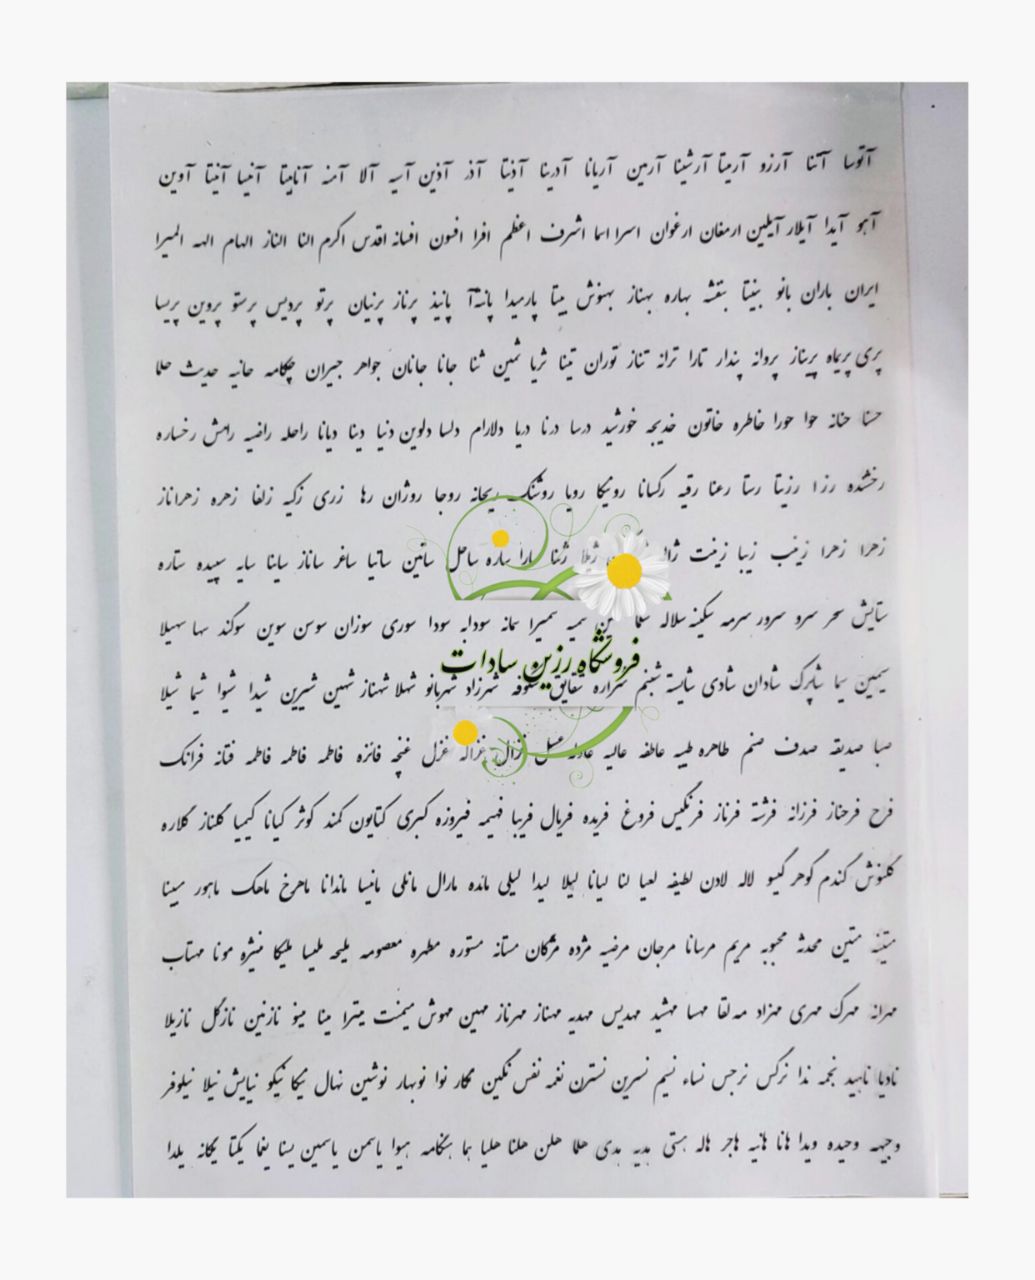 آتوسا آتنا آرزو آرمیتا آرشینا آرمین آریانا آدرینا آذیتا آذر آذین آسیه آلا آمنه آناهیتا آنیسا آنیتا آوین
آهو آیدا آیلار آیلین ارمغان ارغوان اسرا اسما اشرف اعظم افرا افسون افسانه اقدس اکرم النا الناز الهام الهه المیرا
ایران باران بانو بنیتا بنفشه بهاره بهناز بهنوش بیتا پارمیدا پانته‌آ پانیذ پرناز پرنیان پرتو پردیس پرستو پروین پریسا
پری پریماه پریناز پروانه پندار تارا ترانه تناز توران تینا ثریا ثمین ثنا جانا جانان جواهر جیران چکامه حانیه حدیث حلا
حسنا حنانه حوا حورا خاطره خاتون خدیجه خورشید درسا درنا دریا دلارام دلسا دلوین دنیا دینا دیانا راحله راضیه رامش رخساره
رخشنده رزا رزیتا رستا رعنا رقیه رکسانا رونیکا رویا روشنک ریحانه روجا روژان رها زری زکیه زلفا زهره زهراناز
زهرا زهرا زینب زیبا زینت ژاله ژینا سارا ساره ساحل ساتین ساتیا ساغر ساناز ساینا سایه سپیده ستاره
ستایش سحر سرو سرور سرمه سکینه سلاله سمیه سمیرا سمانه سودابه سودا سوری سوزان سوسن سوین سوگند سها سهیلا
فروشگاه رزین سادات
سیمین سیما شاپرک شادان شادی شایسته شبنم شراره شقایق شکوفه شهرزاد شهربانو شهلا شهناز شهین شیرین شیدا شیوا شیما شیلا
صبا صدیقه صدف صنم طاهره طیبه عاطفه عالیه عادله عسل غزال غزاله غزل غنچه فائزه فاطمه فاطمه فاطمه فتانه فرانک
فرح فرحناز فرزانه فرشته فرناز فرنگیس فروغ فریده فریال فریبا فهیمه فیروزه کبری کتایون کمند کوثر کیانا کیمیا گلناز گلاره
گلنوش گندم گوهر گیسو لاله لادن لطیفه لعیا لنا لیانا لیلا لیدا لیلی مائده مارال مانلی مانیسا ماندانا ماهرخ ماهک ماهور مبینا
متینه متین محدثه محبوبه مریم مرسانا مرجان مرضیه مژده مژگان مستانه مستوره مطهره معصومه ملیحه ملیسا ملیکا منیژه مونا مهتاب
مهرانه مهرک مهری مهرزاد مه‌لقا مهسا مهشید مهدیس مهدیه مهناز مهرناز مهین مهوش میمنت میترا مینا مینو نازنین نازگل نازیلا
نادیا ناهید نجمه ندا نرگس نرجس نساء نسیم نسرین نسترن نغمه نفس نگین نگار نوا نوبهار نوشین نهال نیکا نیکو نیایش نیلا نیلوفر
وجیهه وحیده ویدا هانا هانیه هاجر هاله هستی هدیه هدی هلما هلن هلنا هلیا هما هنگامه هیوا یاسمن یاسمین یسنا یغما یکتا یگانه یلدا